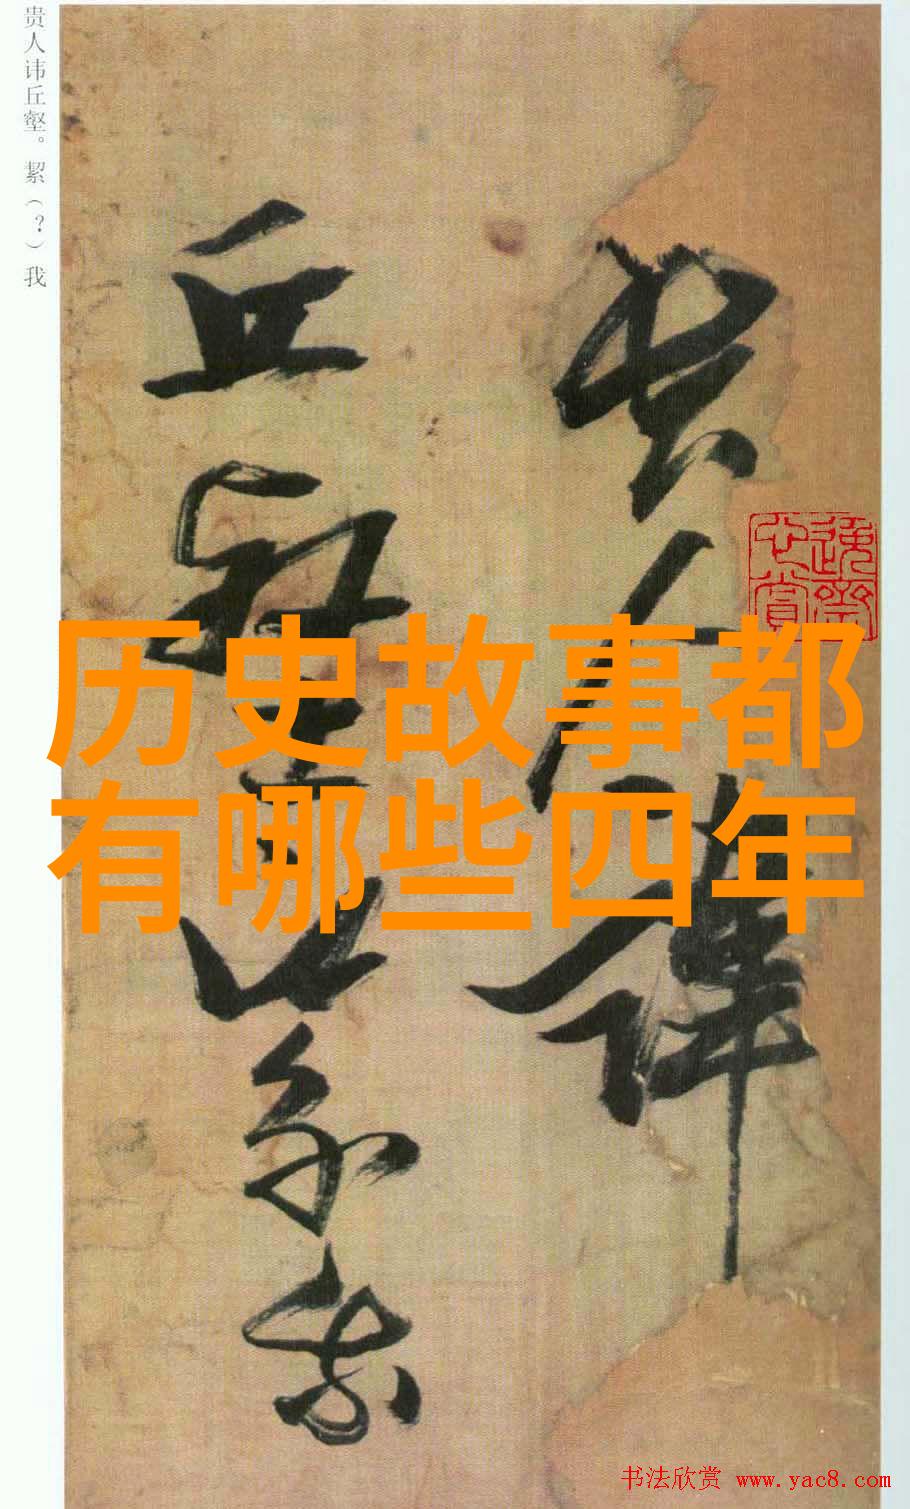 贵人讳丘壑。絜（？）我
贵人讳
丘壑絜我
历史故事都
有哪些四年
书法欣赏 www.yac8.com